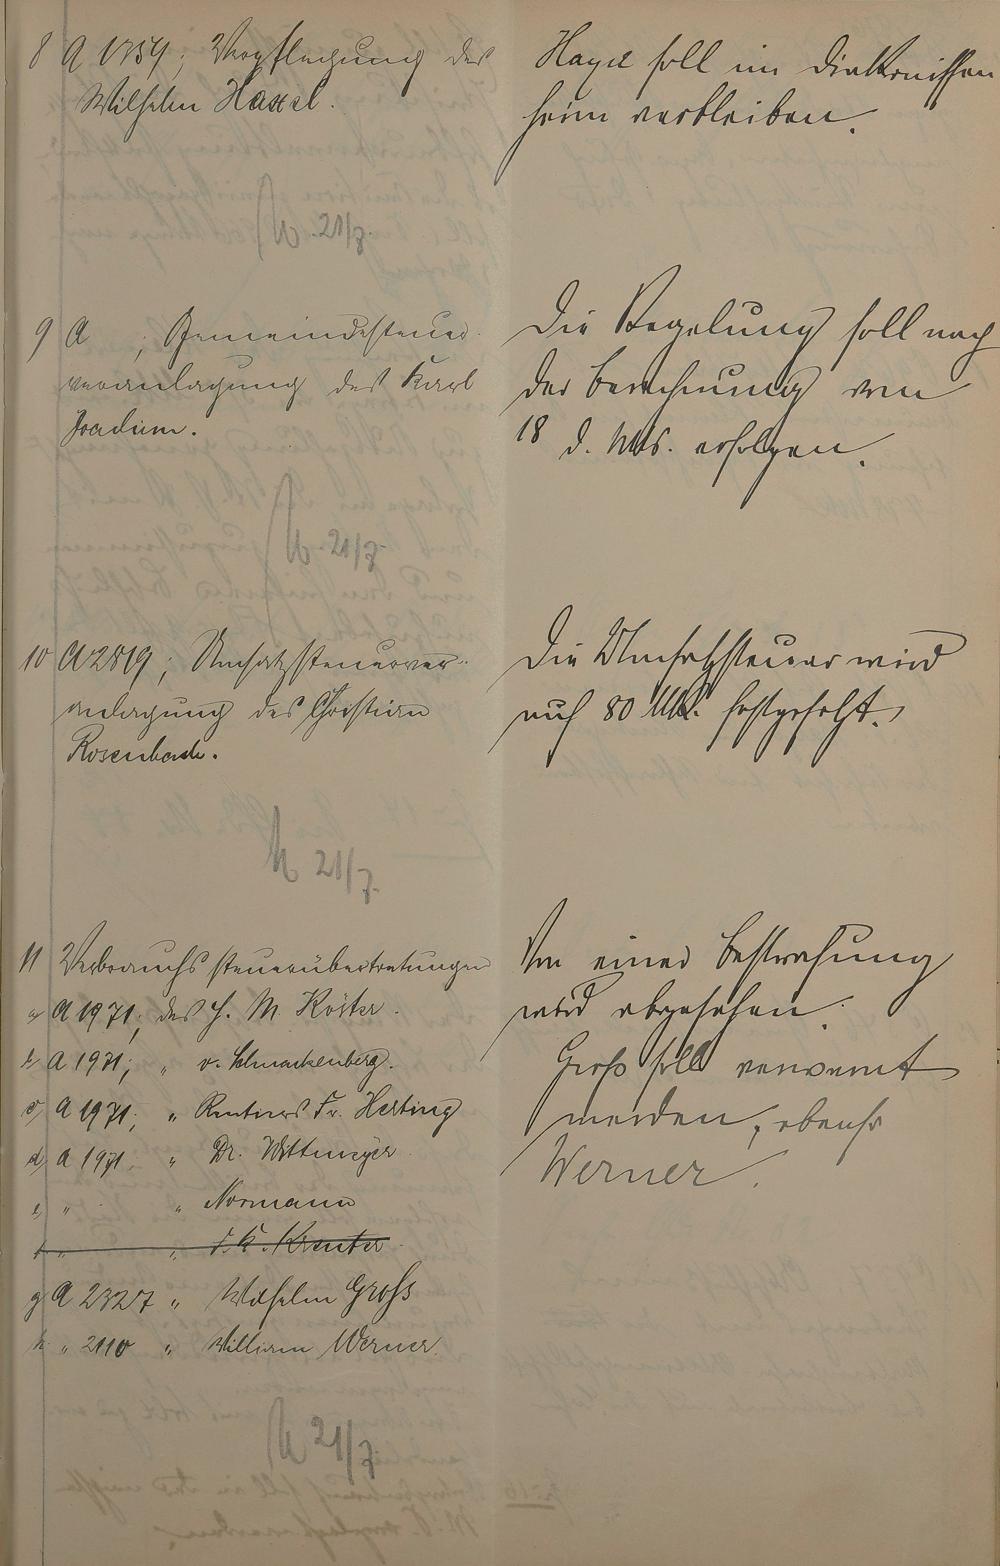 8 A 1754; Verpflegung des
Wilhelm Haxel.
Haxel soll im Diakonissen
heim verbleiben.
21/7.
9 A ; Gemeindesteuer
veranlagung des Karl
Joachim.
Die Regelung soll nach
der Berechnung vom
18 d. Mts. erfolgen.
21/7.
10 A 2819; Umsatzsteuerver-
anlagung des Christian
Rosenbach.
Die Umsatzsteuer wird
auf 80 Mk. festgesetzt.
21/7.
11 Verbrauchssteuerübertretungen
a) A 1971; des H. M. Köster.
b) A 1971; " v. Schmackenberg.
c) A 1971; " Rentners Fr. Herting
d) A 1971. " Dr. Wittmeyer
e) " " Normann
f) " " F. K. Kreuter
g) A 2327 " Wilhelm Groß
h " 2110 " William Werner.
Von einer Bestrafung
wird abgesehen.
Groß soll verwarnt
werden, ebenso
Werner.
21/7.